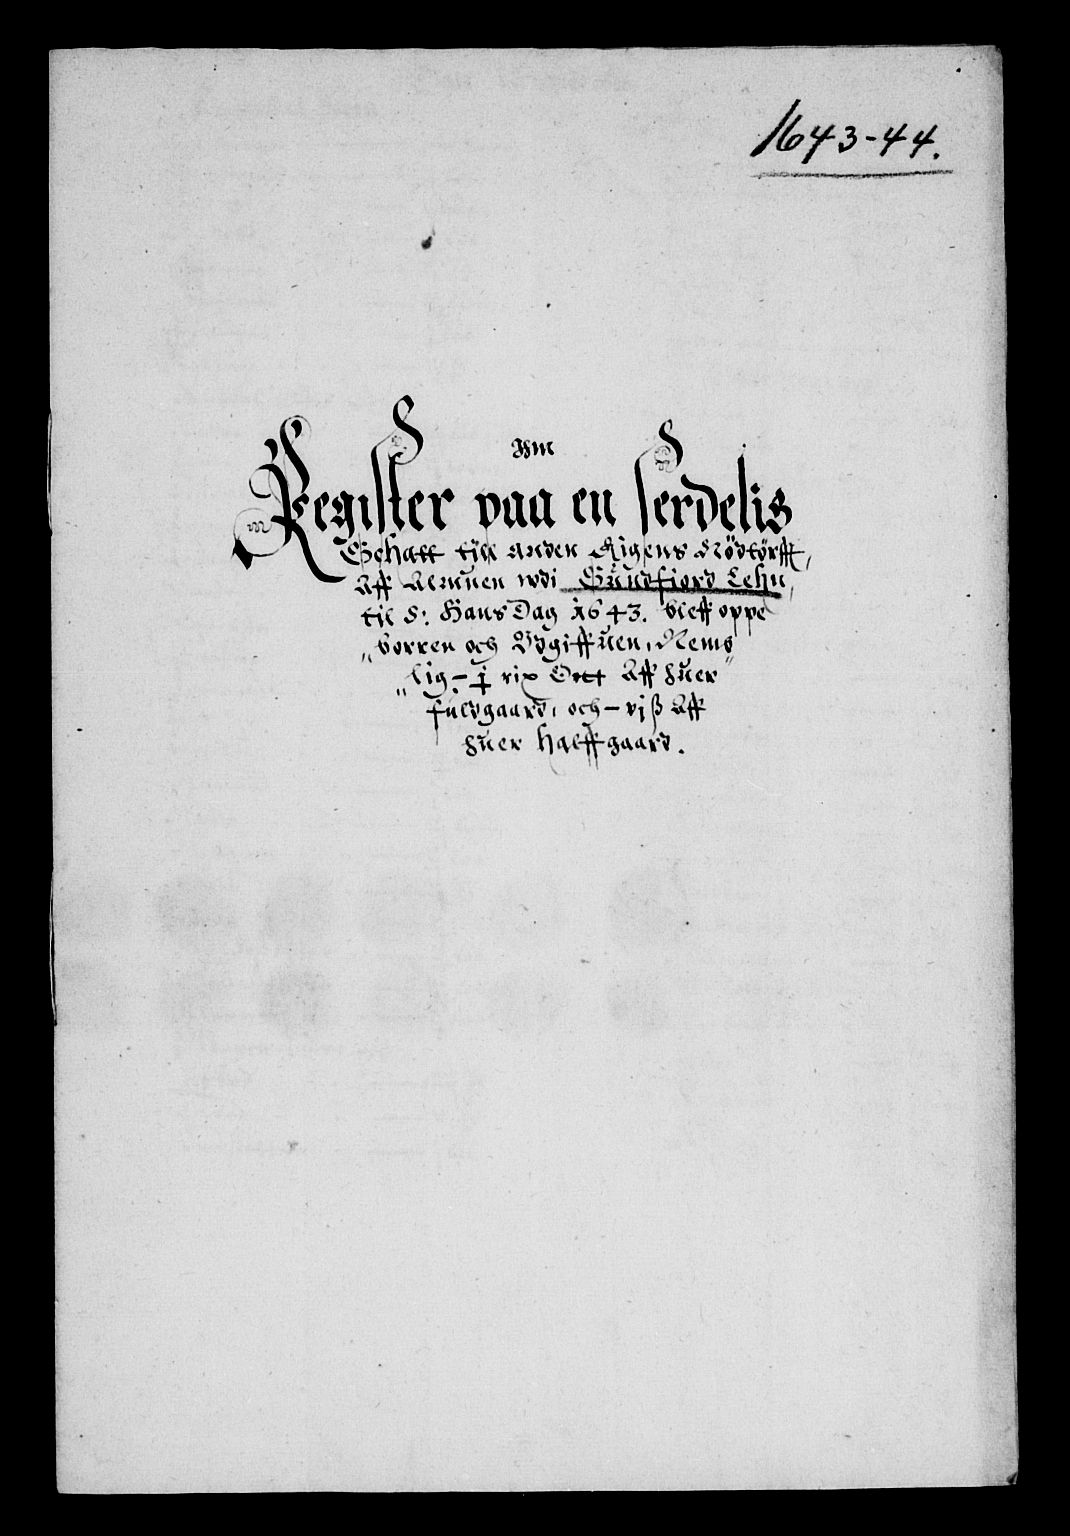 1643-44.
Register paa en serdelis
Schatt till anden Rigens Nødtørfft,
Aff Almuen wdi Sundfiord Lehn,
til S: Hans Dag 1643. bleff oppe
borren och Vdgiffuen, Nems
lig - j rix Ortt Aff huer
fuldgaard, och - vj ß Aff
huer halffgaard.